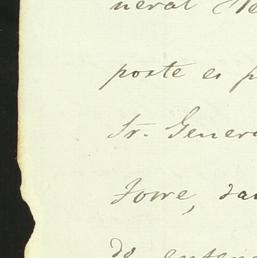 neral
poste es p
Sr. Genera
Torre, da
do